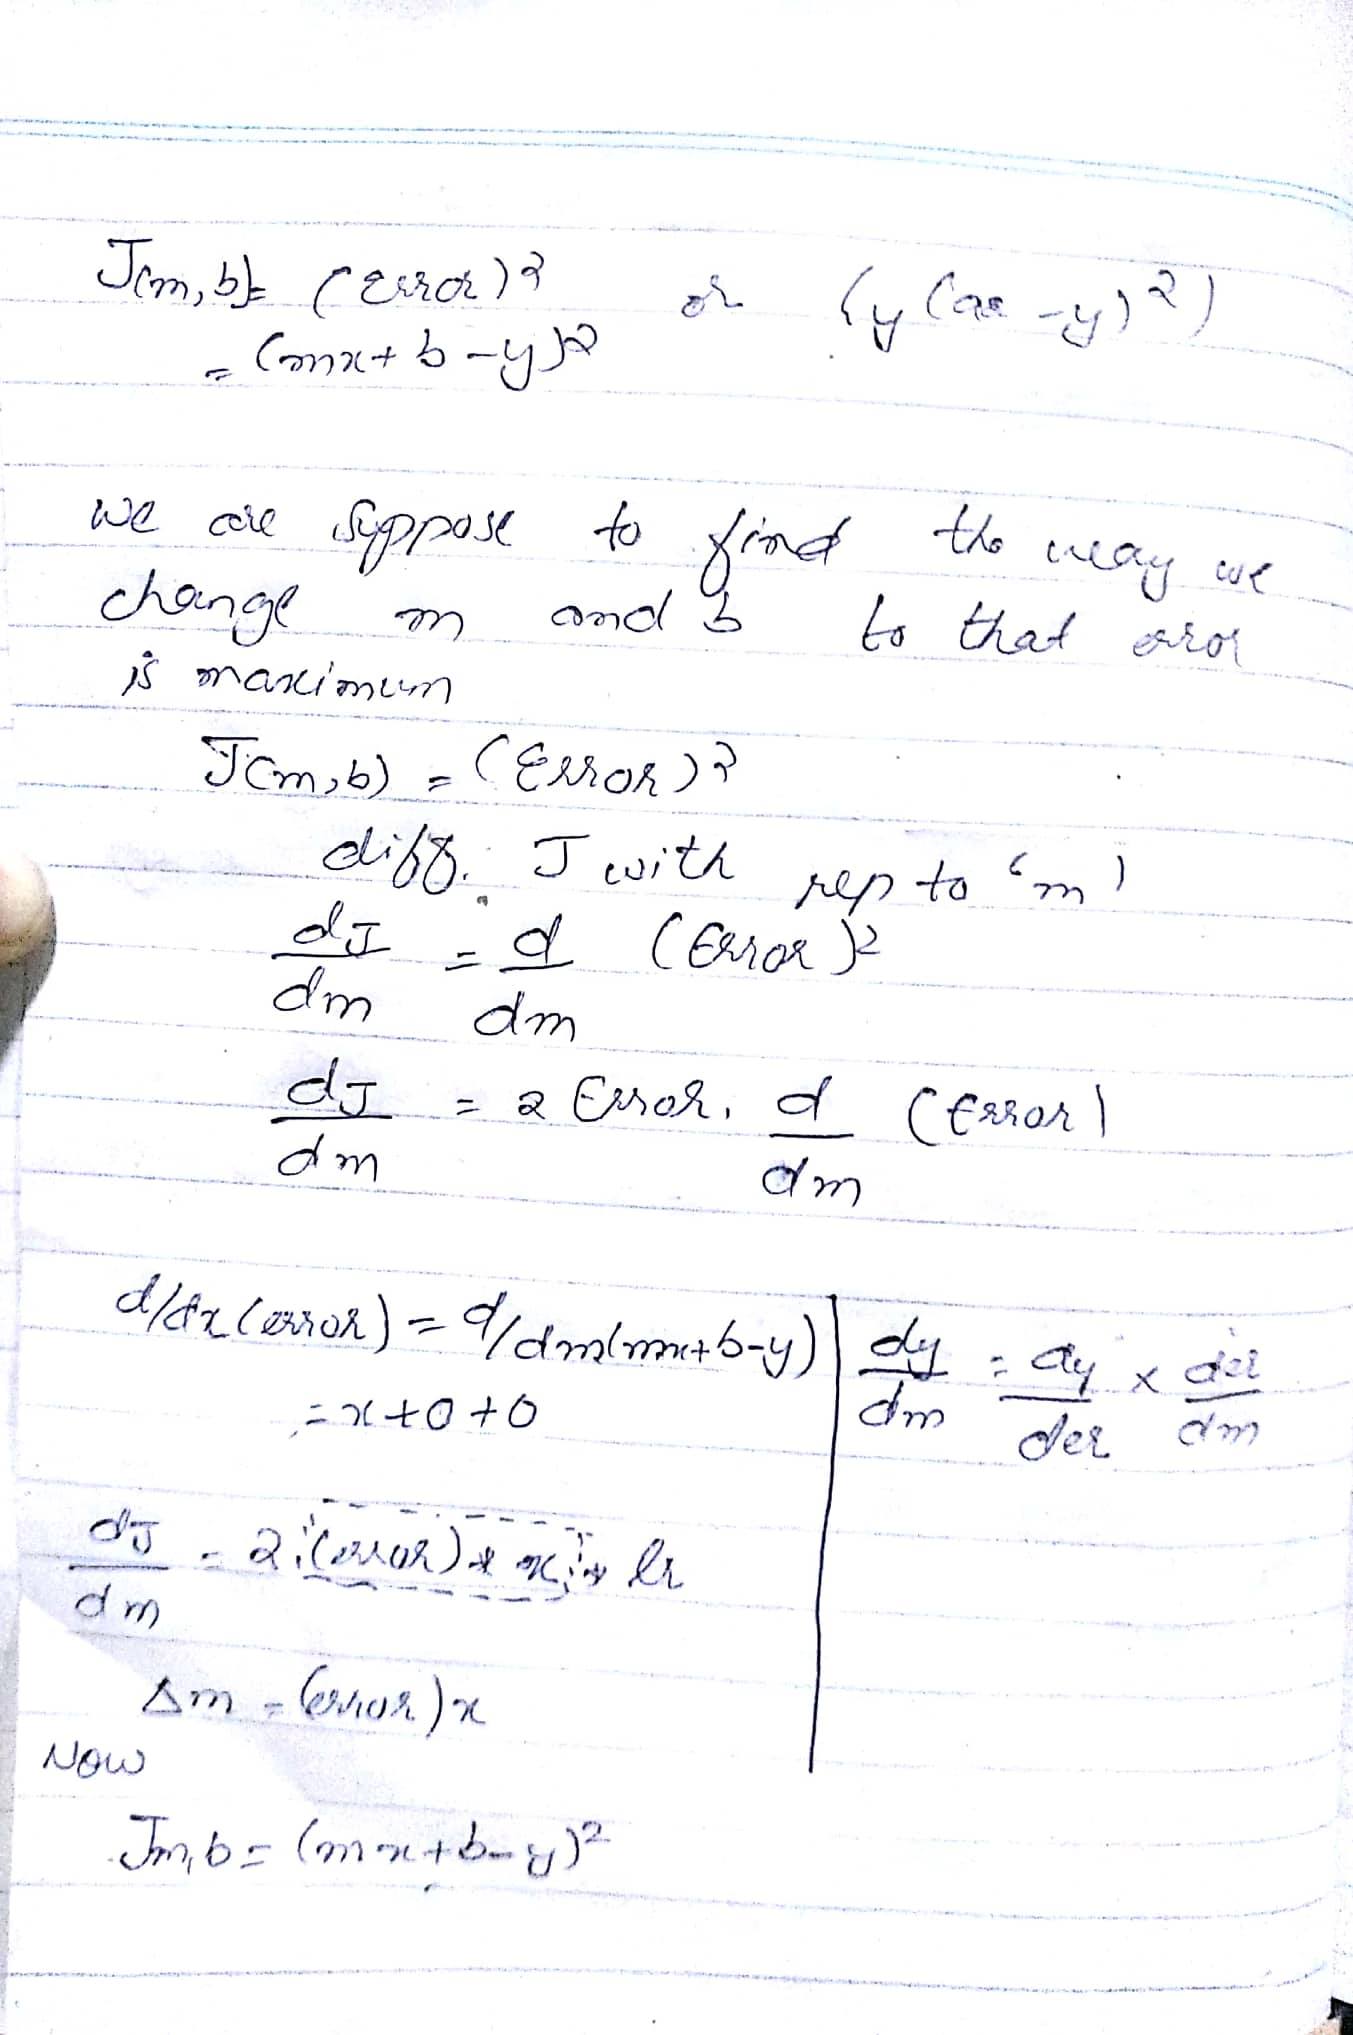 J(m,b)= (Error)2 or
= (mx+b-y)2
we are suppose to find the way we
change m and b to that error
is maximum
J(m,b) = (Error)2
diff. J with rep to 'm'
dJ/dm = d/dm (Error)2
dJ/dm = 2 Error. d/dm (Error)
d/dx(error) = d/dm(mx+b-y)
= x+0+0
dy/dm = dy/der x der/dm
dJ/dm = 2 (error) * x * lr
Δm = (error)x
Now
Jm,b = (mx+b-y)2